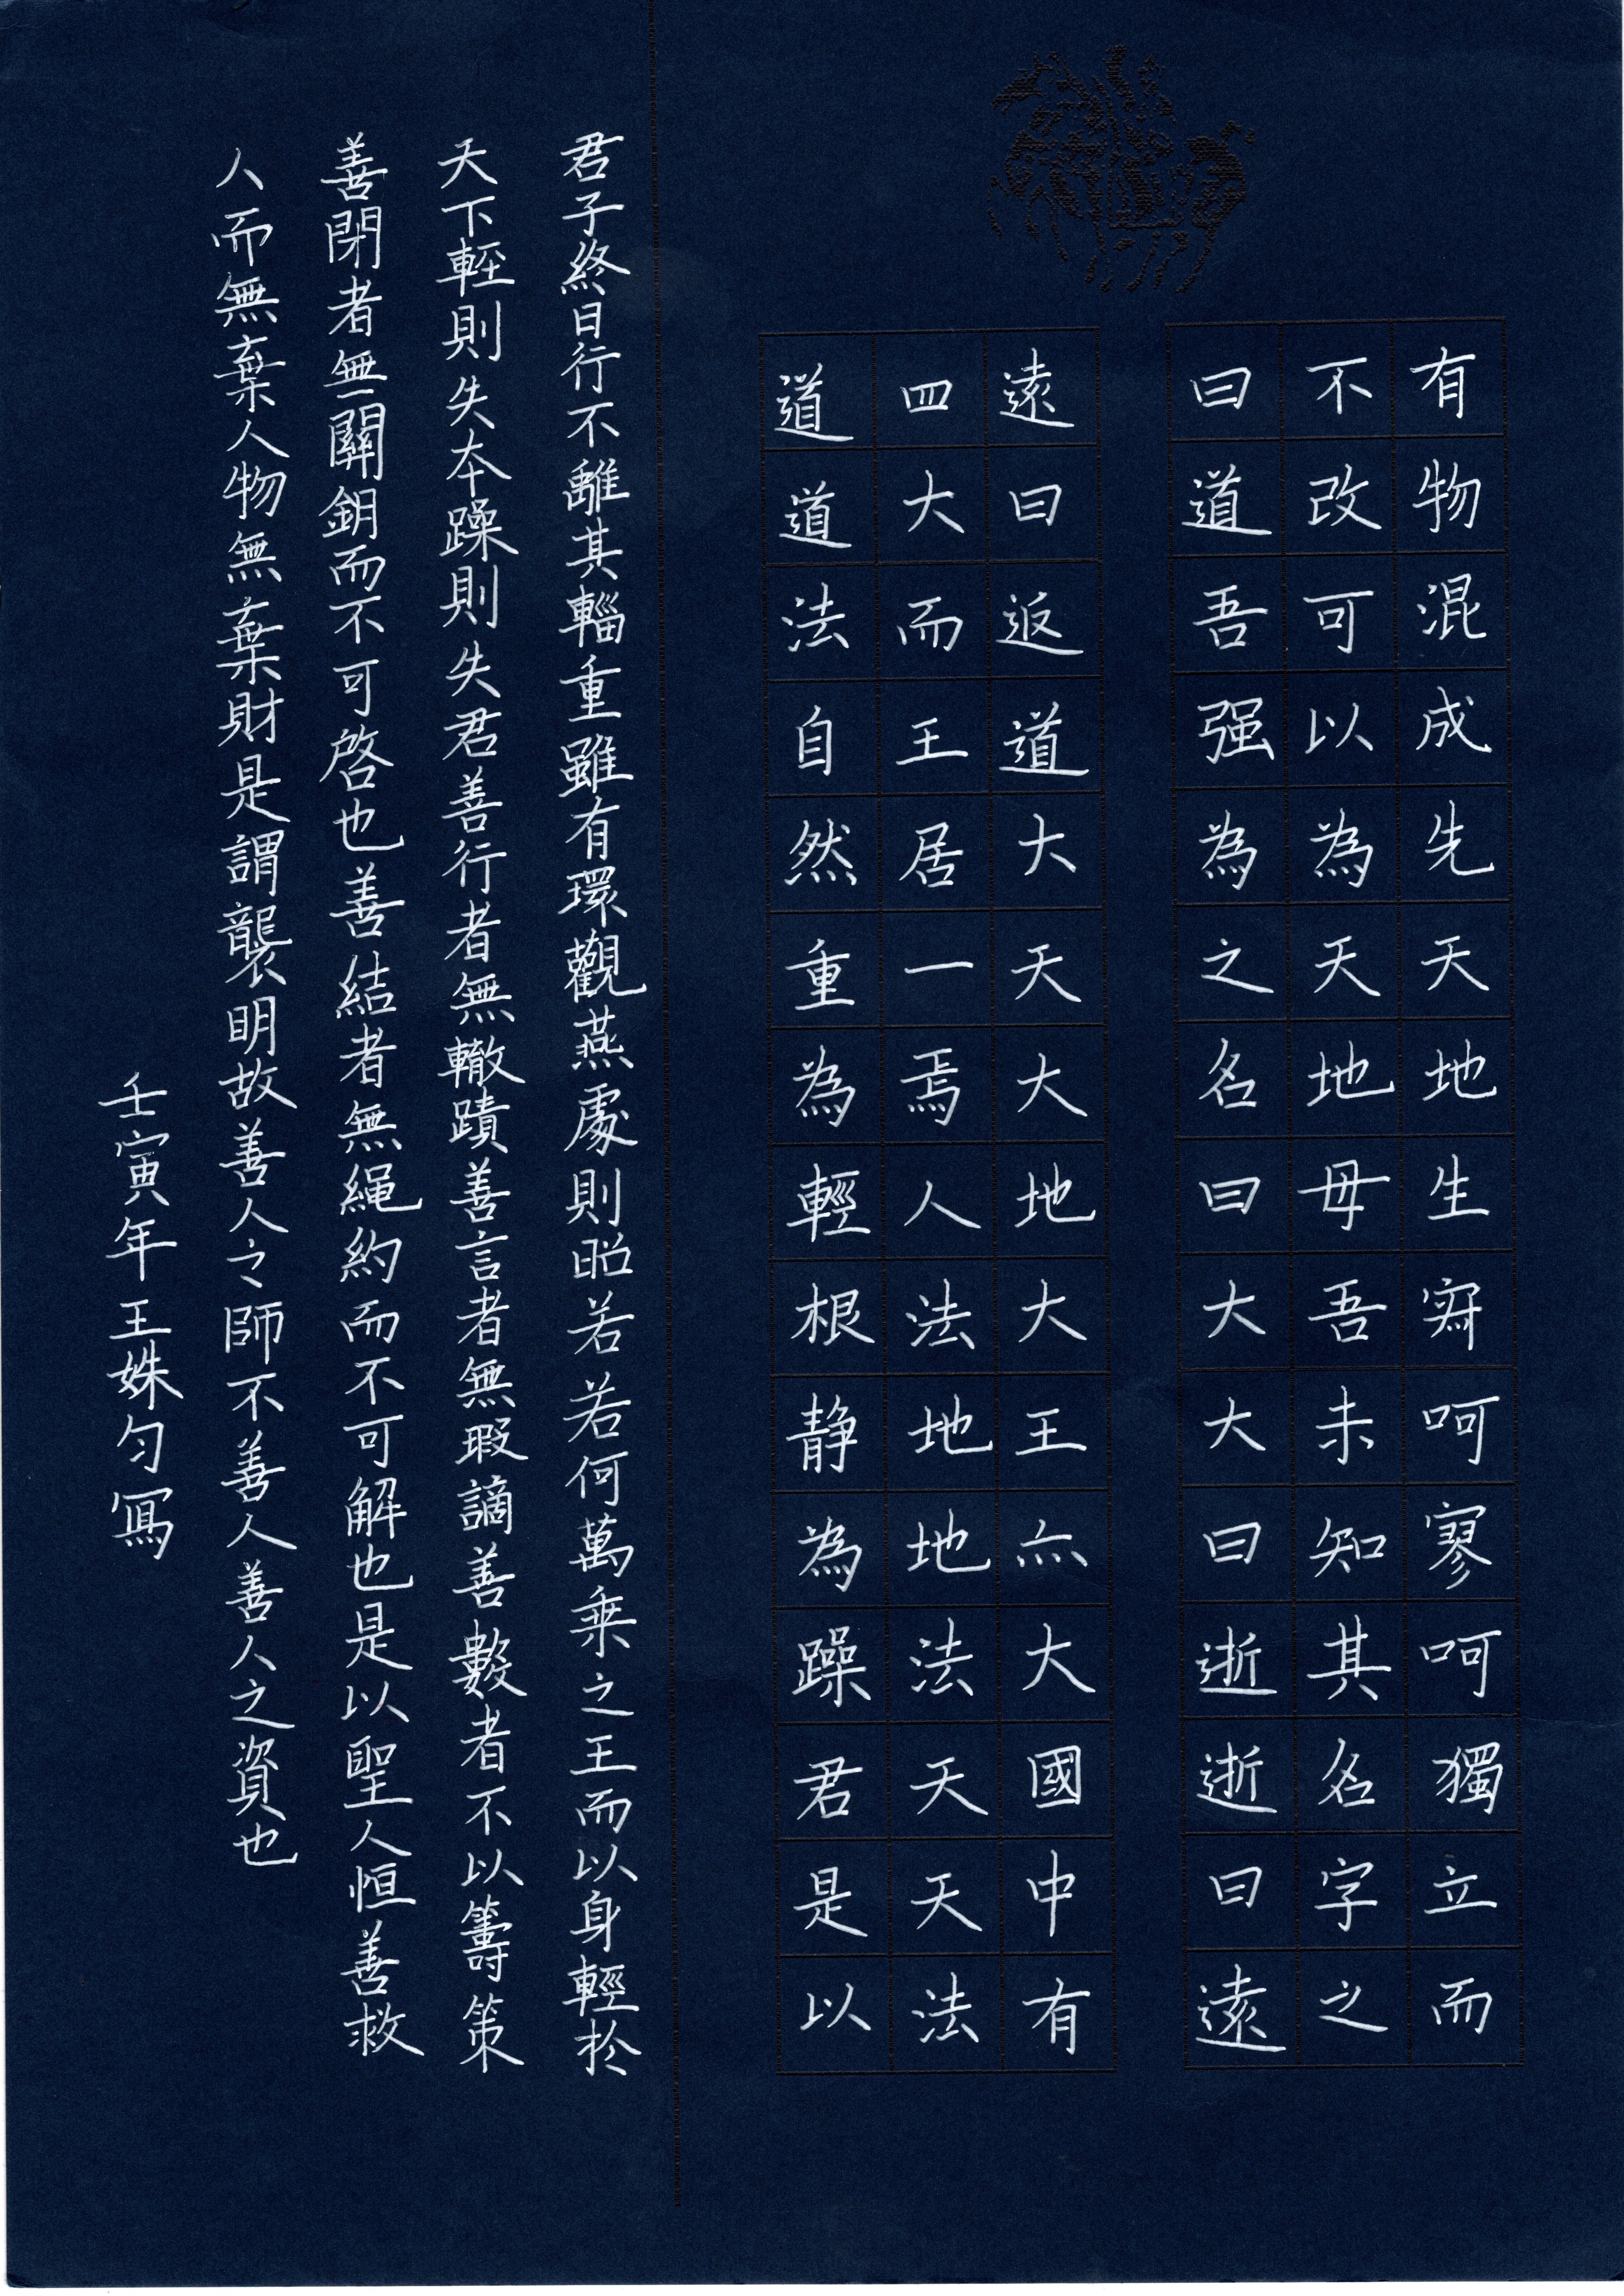 有物混成先天地生寂呵寥呵獨立而
不改可以為天地母吾未知其名字之
曰道吾强為之名曰大大曰逝逝曰遠
遠曰返道大天大地大王亦大國中有
四大而王居一焉人法地地法天天法
道道法自然重為輕根静為躁君是以
君子終日行不離其輜重雖有環觀燕處則昭若若何萬乘之王而以身輕於
天下輕則失本躁則失君善行者無轍蹟善言者無瑕謫善數者不以籌策
善閉者無關鑰而不可啓也善結者無繩約而不可解也是以聖人恒善救
人而無棄人物無棄財是謂襲明故善人之師不善人善人之資也
壬寅年王姝匀寫